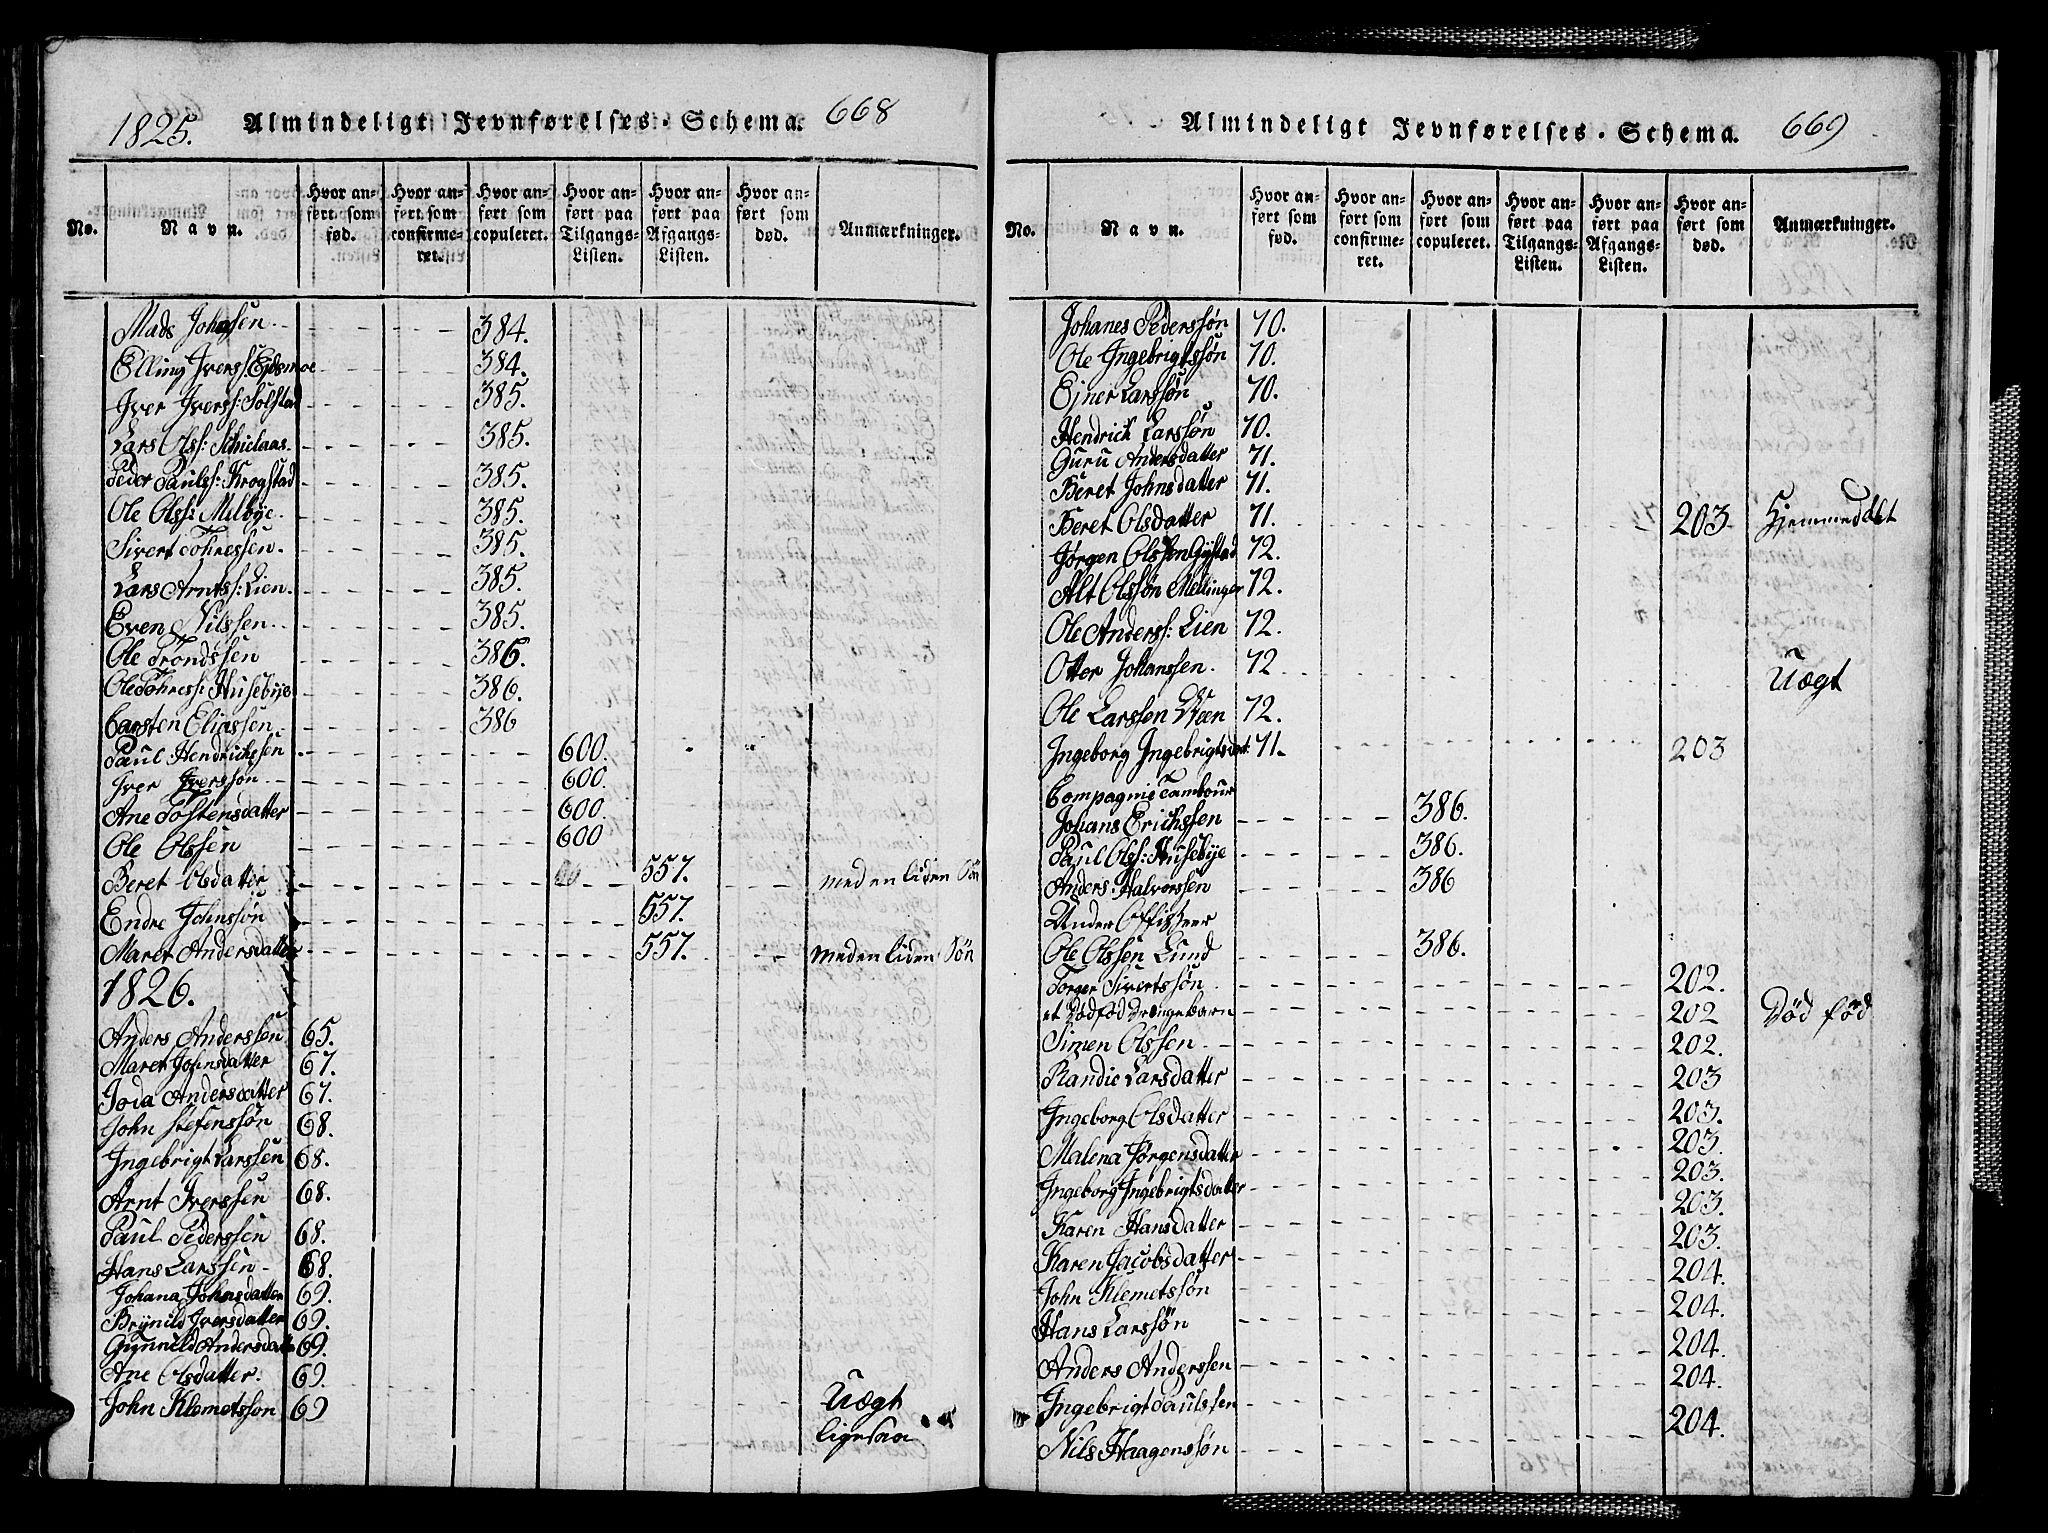 1825. Almindeligt Jevnførelses-Schema. 668
No. Navn. Hvor anført som fød. Hvor anført som confirmeret. Hvor anført som copuleret. Hvor anført paa Tilgangs-Listen. Hvor anført paa Afgangs-Listen. Hvor anført som død. Anmærkninger.
Mads Johnsen 384.
Elling Iverss: Ejdsmoe 384.
Iver Iverss: Solstad 385.
Lars Olss: 385.
Peder Paulss: Krogstad 385.
Ole Olss: Melbÿe 385.
Sivert Tohressen. 385.
Lars Arntss: Lien. 385.
Even Nilssen 385.
Ole Trondssen 386.
Ole Tohress: Husebÿe 386.
Carsten Eliassen 386
Paul Hendrichsen 600.
Iver Iversson 600.
Ane Tostensdatter 600.
Ole Olssen 600
Beret Olsdatter 557. med en liden Sön
Endre Johnssön 557.
Maret Andersdatter 557. med en liden Sön
1826.
Anders Anderssen 65.
Maret Johnsdatter 67.
Joda Andersdatter 67.
John Stefenssön 68.
Ingebrigt Larssen 68.
Arnt Iverssen 68.
Paul Pederssen 68.
Hans Larssen 68.
Johana Johnsdatter 69.
Brÿnild Iversdatter 69.
Gunnild Andersdatt 69.
Ane Olsdatter. 69.
John Klemetsson 69 Uægt
ligesaa
Almindeligt Jevnførelses-Schema. 669
No. Navn. Hvor anført som fød. Hvor anført som confirmeret. Hvor anført som copuleret. Hvor anført paa Tilgangs-Listen. Hvor anført paa Afgangs-Listen. Hvor anført som død. Anmærkninger.
Johanes Pederssön 70.
Ole Ingebrigtssön 70.
Ejner Larssön 70.
Hendrich Larssön 70.
Guru Andersdatter 71.
Beret Johnsdatter 71.
Beret Olsdatter 71. 203 Hjemmedøbt
Jörgen Olssen Gÿstad 72.
Alt Olssön Mellinger 72.
Ole Anderss: Lien 72.
Otter Johanssen. 72 Uægt
Ole LarssenWeen 72.
Ingeborg Ingebrigtsdat: 71. 203
Compagnie Tambour
Johans Erichssen 386.
Paul Olss: Husebÿe 386.
Anders Halvorssen 386
Under Offisseer
Ole Olssen Lund 386.
Torger Sivertssön 202.
et Dödfød Drengebarn 202 Död fød
Simen Olssen 202.
Randie Larsdatter 203
Ingeborg Olsdatter 203.
Malena Jörgensdatter 203.
Ingeborg Ingebrigtsdatter 203.
Karen Hansdatter 203.
Karen Jacobsdatter 203.
John Klemetssön 204.
Hans Larssön 204.
Anders Anderssen 204.
Ingebrigt Paulssen 204.
Nils Haagenssön 204.